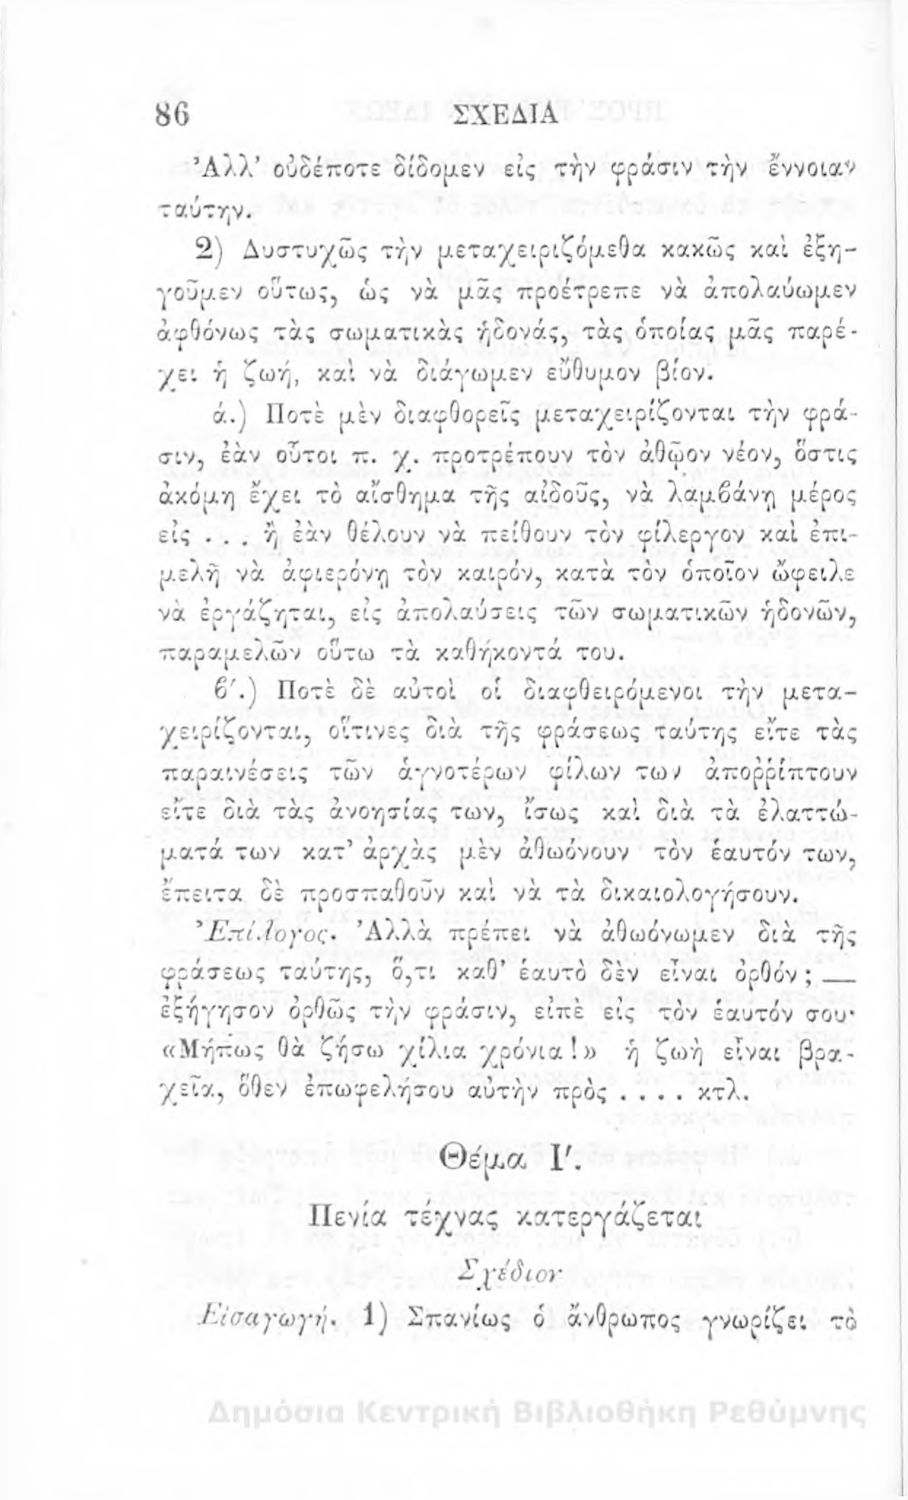 86 ΣΧΕΔΙΑ
Ἀλλ' οὐδέποτε δίδομεν εἰς τὴν φράσιν τὴν ἔννοιαν
ταύτην.
2) Δυστυχῶς τὴν μεταχειριζόμεθα κακῶς καὶ ἐξη-
γοῦμεν οὕτως, ὡς νὰ μᾶς προέτρεπε νὰ ἀπολαύωμεν
ἀφθόνως τὰς σωματικὰς ἡδονάς, τὰς ὁποίας μᾶς παρέ-
χει ἡ ζωή, καὶ νὰ διάγωμεν εὔθυμον βίον.
ά.) Ποτὲ μὲν διαφθορεῖς μεταχειρίζονται τὴν φρά-
σιν, ἐὰν οὗτοι π. χ. προτρέπουν τὸν ἀθῷον νέον, ὅστις
ἀκόμη ἔχει τὸ αἴσθημα τῆς αἰδοῦς, νὰ λαμβάνῃ μέρος
εἰς . . . ἢ ἐὰν θέλουν νὰ πείθουν τὸν φίλεργον καὶ ἐπι-
μελῆ νὰ ἀφιερόνῃ τὸν καιρόν, κατὰ τὸν ὁποῖον ὤφειλε
νὰ ἐργάζηται, εἰς ἀπολαύσεις τῶν σωματικῶν ἡδονῶν,
παραμελῶν οὕτω τὰ καθήκοντά του.
β΄.) Ποτὲ δὲ αὐτοὶ οἱ διαφθειρόμενοι τὴν μετα-
χειρίζονται, οἵτινες διὰ τῆς φράσεως ταύτης εἴτε τὰς
παραινέσεις τῶν ἁγνοτέρων φίλων των ἀποῤῥίπτουν
εἴτε διὰ τὰς ἀνοησίας των, ἴσως καὶ διὰ τὰ ἐλαττώ-
ματά των κατ' ἀρχὰς μὲν ἀθωόνουν τὸν ἑαυτόν των,
ἔπειτα δὲ προσπαθοῦν καὶ νὰ τὰ δικαιολογήσουν.
Ἐπίλογος. Ἀλλὰ πρέπει νὰ ἀθωόνωμεν διὰ τῆς
φράσεως ταύτης, ὅ,τι καθ' ἑαυτὸ δὲν εἶναι ὀρθόν; —
ἐξήγησον ὀρθῶς τὴν φράσιν, εἰπὲ εἰς τὸν ἑαυτόν σου·
«Μήπως θὰ ζήσω χίλια χρόνια!» ἡ ζωὴ εἶναι βρα-
χεῖα, ὅθεν ἐπωφελήσου αὐτὴν πρὸς . . . . κτλ.
Θέμα Ι΄.
Πενία τέχνας κατεργάζεται
Σχέδιον
Εἰσαγωγή. 1) Σπανίως ὁ ἄνθρωπος γνωρίζει τὸ
Δημόσια Κεντρική Βιβλιοθήκη Ρεθύμνης